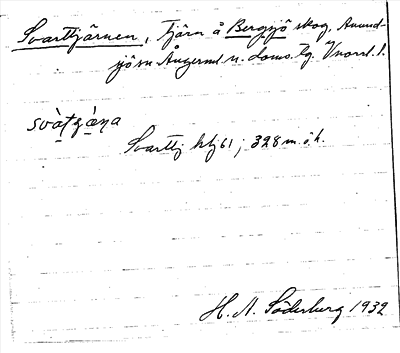 Svarttjärnen, Tjärn å Bergsjö skog, Anund-
sjö sn Ångerml. n. doms. tg. Vnorrl. l.
svàtçæ̀ṇa
Svarttj hbj61; 328 m. ö. h.
H. A. Söderberg 1932